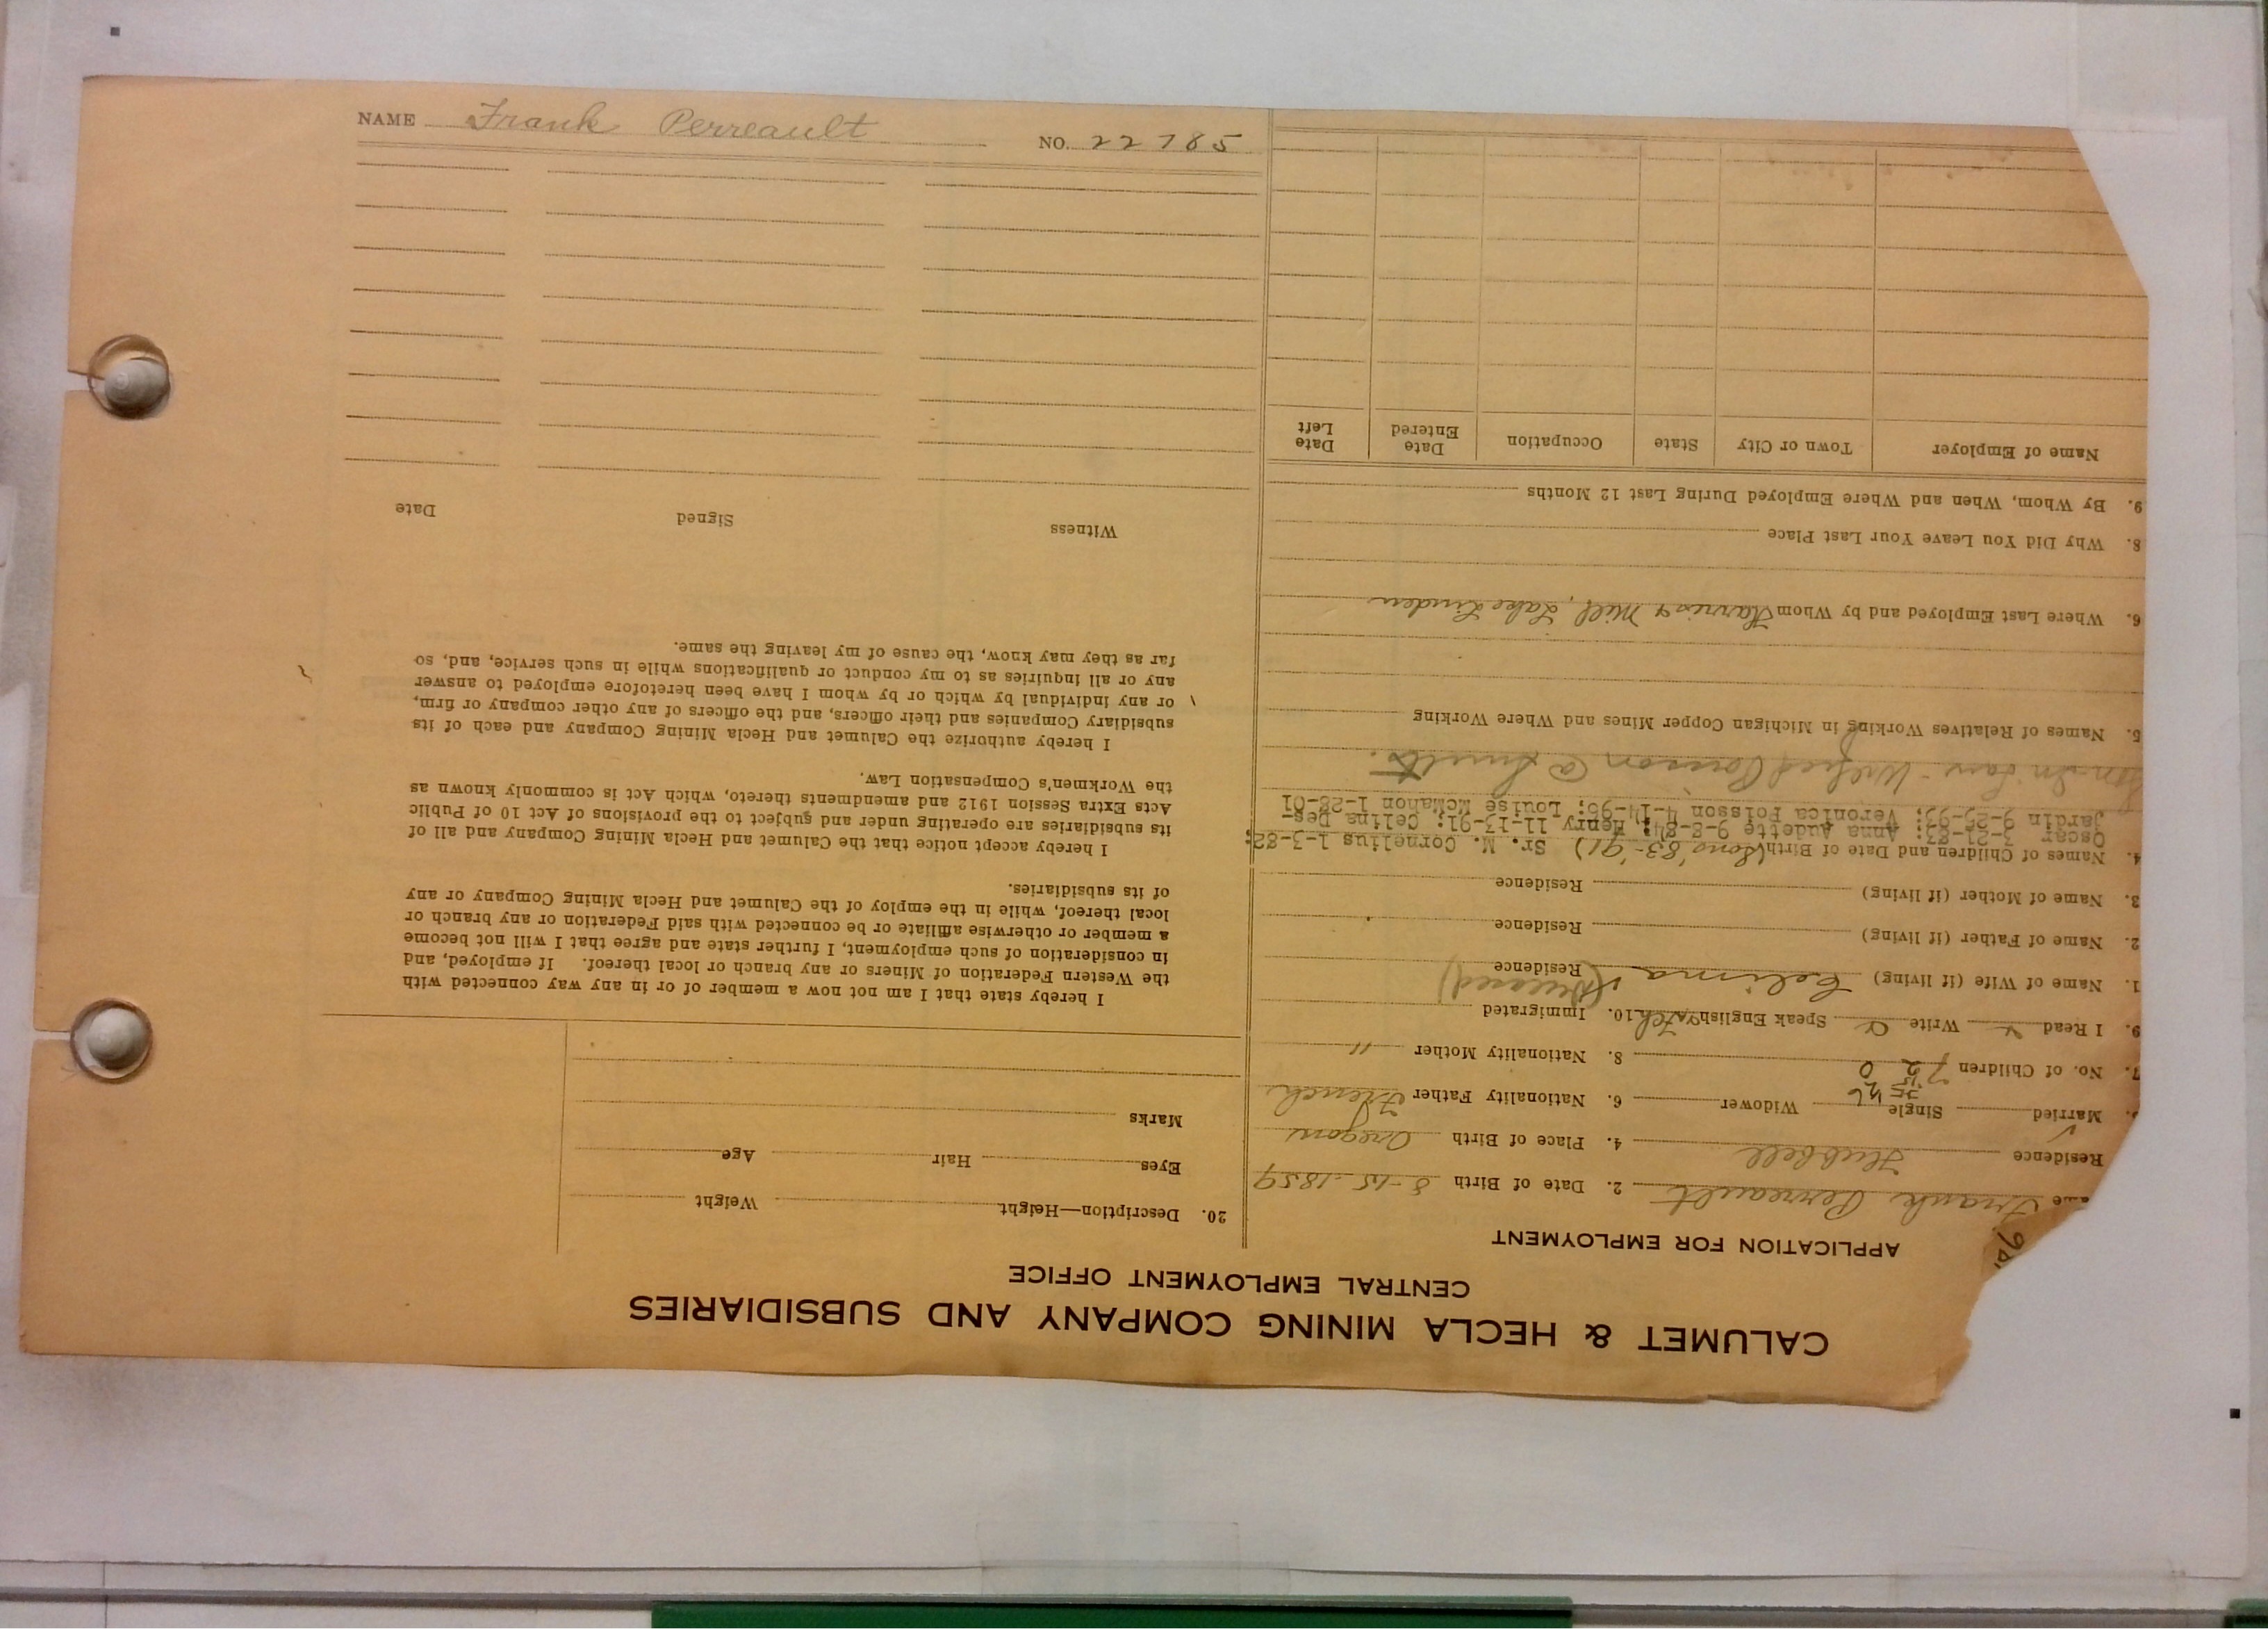 NAME Frank Perreault NO. 22785
CALUMET & HECLA MINING COMPANY AND SUBSIDIARIES
CENTRAL EMPLOYMENT OFFICE
APPLICATION FOR EMPLOYMENT
Frank Perreault 2. Date of Birth 8-15-1859
Residence Hubbell 4. Place of Birth Oregon
Married Single Widower 6. Nationality Father French
7. No. of Children 7 8. Nationality Mother "
9. I Read Write Speak English 10. Immigrated
1. Name of Wife (if living) Celima (Deceased) Residence
2. Name of Father (if living) Residence
3. Name of Mother (if living) Residence
4. Names of Children and Date of Birth (Sons '83-'91) Sr. M. Cornelius 1-3-82;
Oscar 3-21-83; Anna Audette 9-8-84; Henry 11-13-91; Celina Des-
Jardin 9-25-93; Veronica Poisson 4-14-96; Louise McMahon 1-28-01
Son-In Law - Wilfred Poisson @ Smelter.
5. Names of Relatives Working in Michigan Copper Mines and Where Working
6. Where Last Employed and by Whom Mill, Lake Linden
8. Why Did You Leave Your Last Place
9. By Whom, When and Where Employed During Last 12 Months
Name of Employer Town or City State Occupation Date Entered Date Left
20. Description—Height Weight
Eyes Hair Age
Marks
I hereby state that I am not now a member of or in any way connected with
the Western Federation of Miners or any branch or local thereof. If employed, and
in consideration of such employment, I further state and agree that I will not become
a member or otherwise affiliate or be connected with said Federation or any branch or
local thereof, while in the employ of the Calumet and Hecla Mining Company or any
of its subsidiaries.
I hereby accept notice that the Calumet and Hecla Mining Company and all of
its subsidiaries are operating under and subject to the provisions of Act 10 of Public
Acts Extra Session 1912 and amendments thereto, which Act is commonly known as
the Workmen's Compensation Law.
I hereby authorize the Calumet and Hecla Mining Company and each of its
subsidiary Companies and their officers, and the officers of any other company or firm,
or any individual by which or by whom I have been heretofore employed to answer
any or all inquiries as to my conduct or qualifications while in such service, and, so
far as they may know, the cause of my leaving the same.
Witness Signed Date